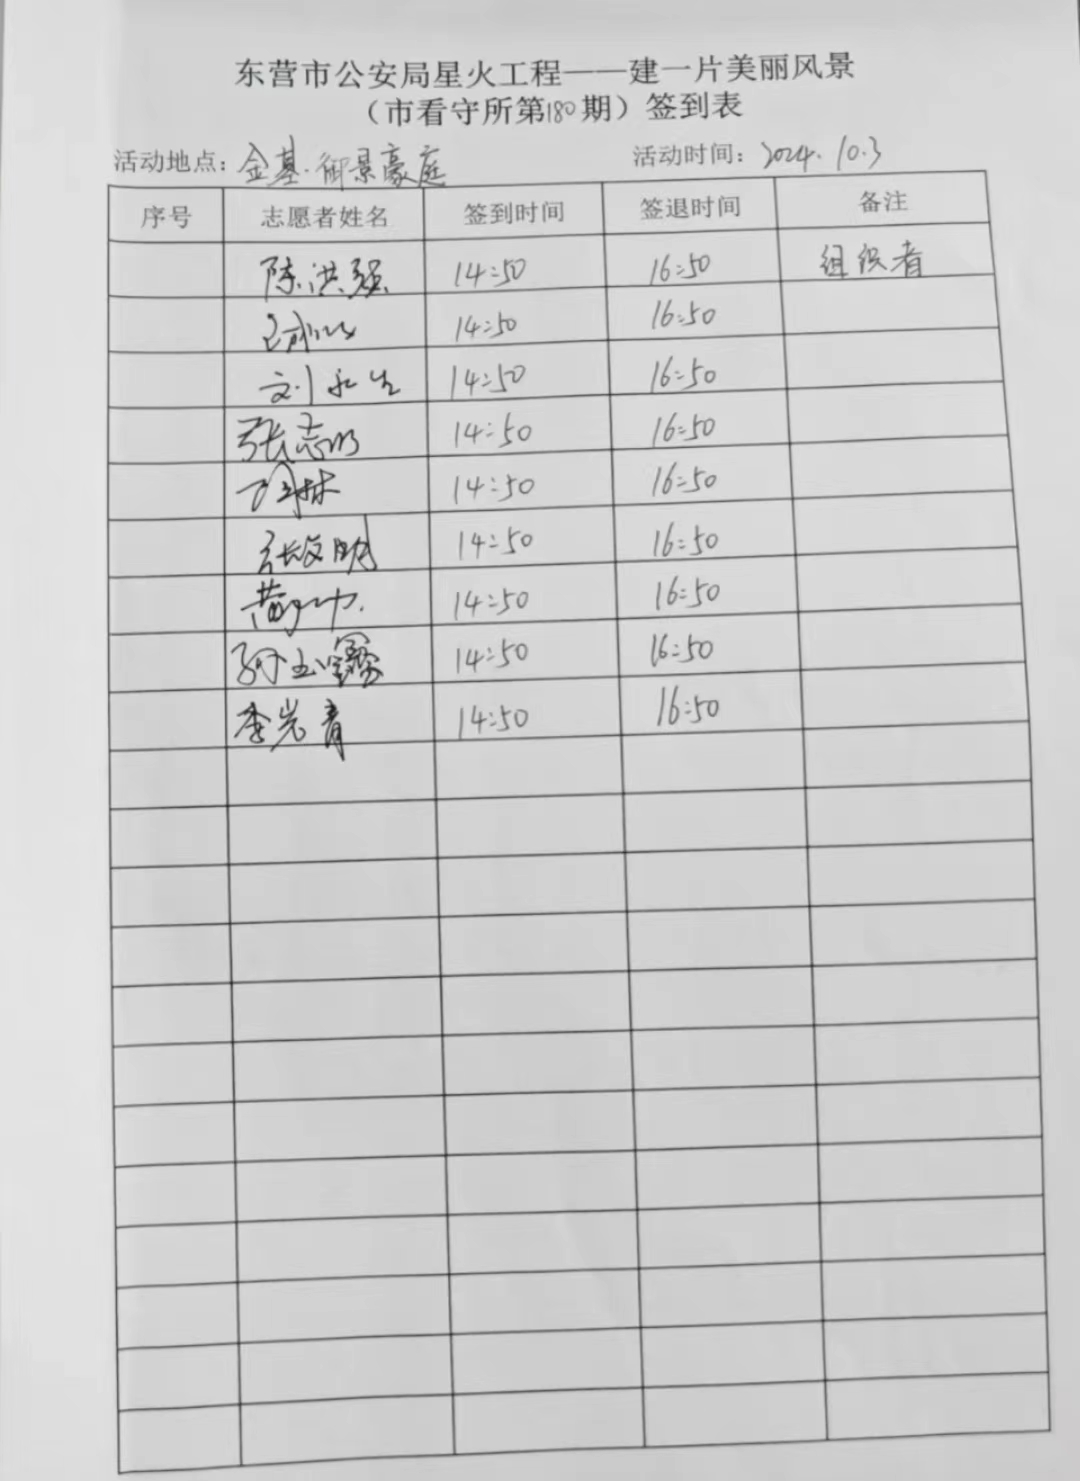 东营市公安局星火工程——建一片美丽风景
（市看守所第180期）签到表
活动地点：金基·御景豪庭 活动时间：2024.10.3
序号 志愿者姓名 签到时间 签退时间 备注
陈洪强 14:50 16:50 组织者
14:50 16:50
刘永生 14:50 16:50
张志明 14:50 16:50
14:50 16:50
张文明 14:50 16:50
黄 14:50 16:50
孙玉 14:50 16:50
李岩青 14:50 16:50